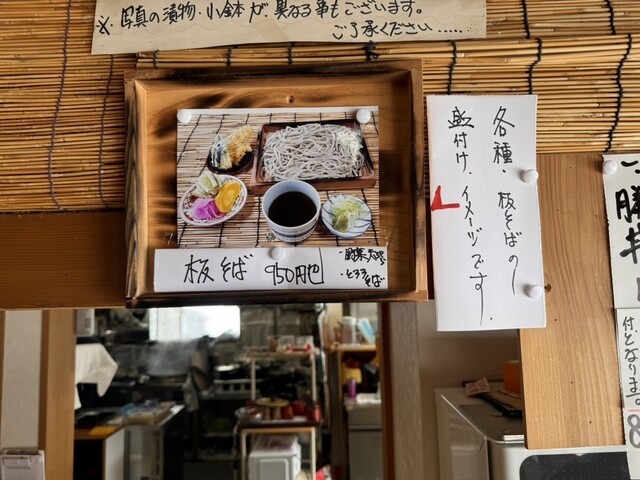 ※写真の漬物、小鉢が、異なる事もございます。
ご了承ください.....
各種、板そばの
盛付け、イメージです。
板そば 950円也
とろろ
そば
付となります。
8